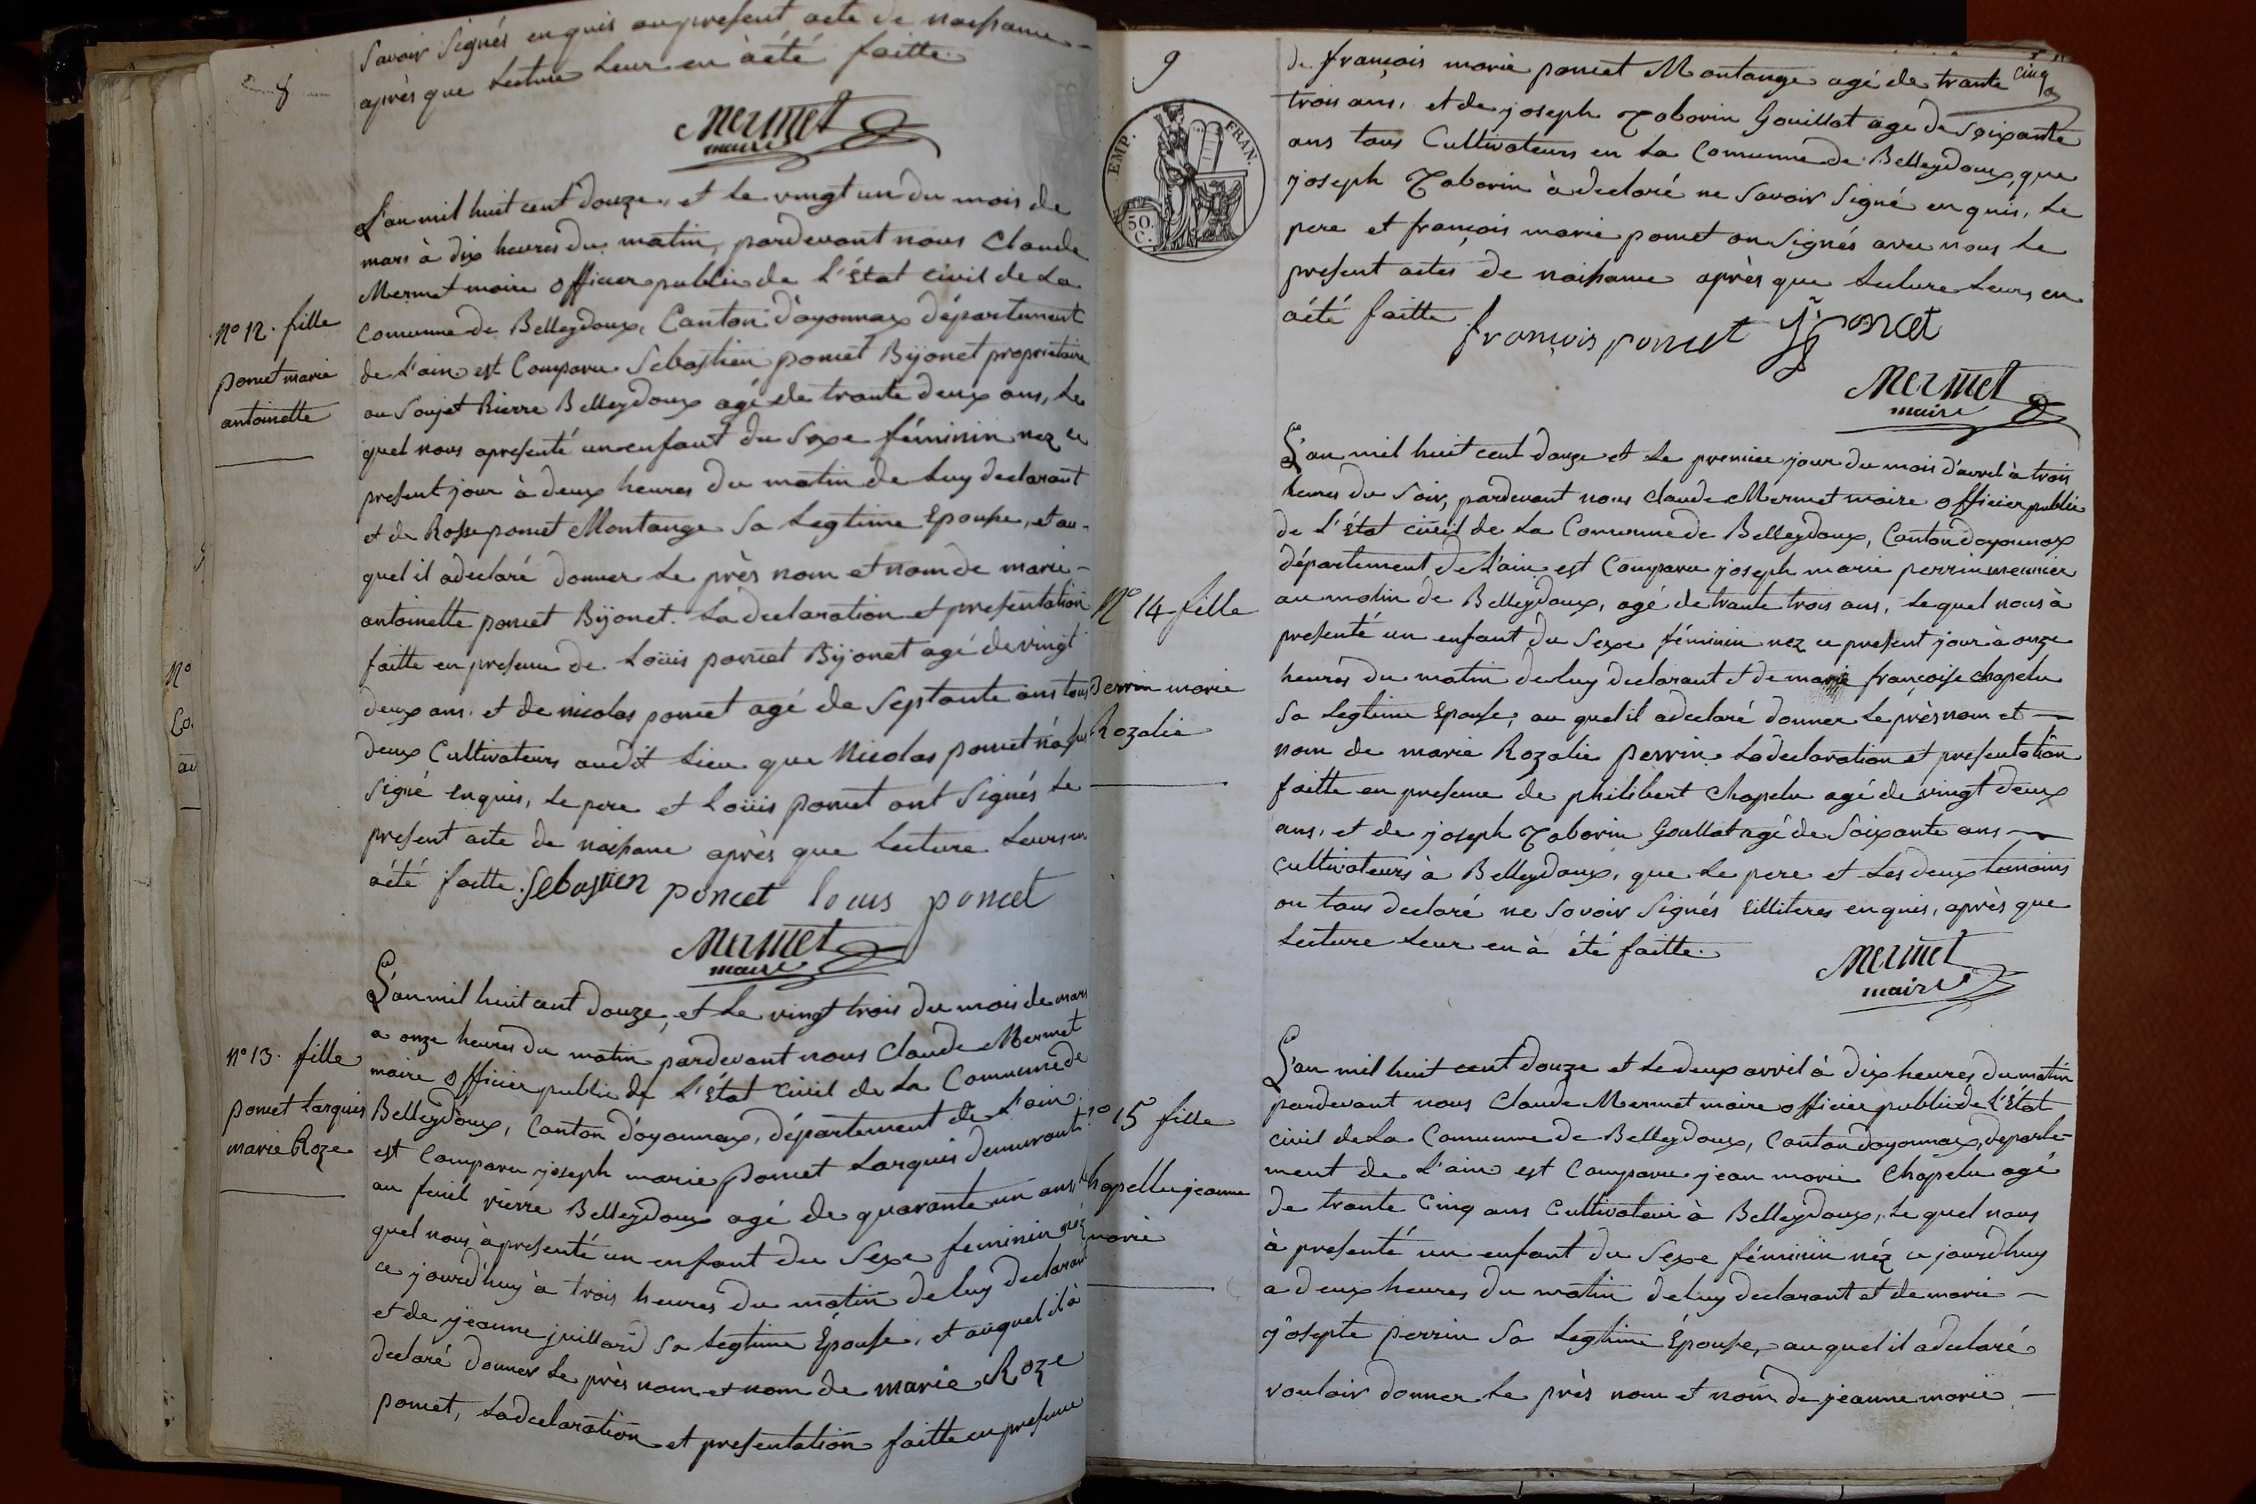 8
Savoir Signés enquis au present acte de naissance
après que Lecture Leur en àété faitte.
Mermet
maire
L'an mil huit cent douze, et le vingt un du mois de
mars à dix heures du matin, pardevant nous Claude
Mermet maire officier public de L'État civil de La
Comunne de Belleydoux, Canton d'oyonnax département
de L'ain est Comparu Sebastien poncet Bijonet propriétaire
au Soujet Rierre Belleydoux agé de trante deux ans, Le
quel nous apresenté un enfant du Sexe féminin nez ce
present jour à deux heures du matin de Luy declarant
et de Rosse poncet Montange Sa Legtime Epousse, et au-
quel il adeclaré donner Le près nom et nom de marie-
antoinette poncet Bijonet. La declaration et presentation
faitte en presence de Loüis poncet Bijonet agé de vingt
deux ans. et de nicolas poncet agé de Septante ans tous
deux Cultivateurs audit Lieu que Nicolas poncet
Signé enquis, Le pere et Loüis poncet ont Signés Le
present acte de naissance après que Lecture Leurs en
àété faitte. Sebastien poncet louis poncet
Mermet
maire
N° 12. fille
poncet marie
antoinette
L'an mil huit cent douze, et Le vingt trois du mois de mars
a onze heures du matin pardevant nous Claude Mermet
maire officier public de L'État Civil de La Comunne de
Belleydoux, Canton d'oyonnax, département de L'ain.
est Comparu joseph marie poncet Larquis demeurant
au fenil rierre Belleydoux agé de quarante un ans, Le
quel nous à presenté un enfant du Sexe feminin néz
ce jourd'huy à trois heures du matin de luy declarant
et de jeanne juillard Sa Legtime Épousse, et auquel il à
declaré donner Le près nom et nom de marie Roze
poncet, La declaration et presentation faitte en presence
N° 13. fille
poncet Larquis
marie Roze
N°
9
EMP. FRAN.
50.
C.
de françois marie poncet Montange agé de trante cinq
trois ans, et de joseph Taborin Gouillat age de Soixante
ans tous Cultivateurs en La Comunne de Belleydoux, que
joseph Taborin à declaré ne Savoir Signé enquis, Le
pere et françois marie poncet on Signés avec nous Le
present actes de naissance après que Lecture Leurs en
àété faitte
françois poncet poncet
Mermet
maire
L'an mil huit cent douze et Le premier jour du mois d'avril à trois
heures du Soir, pardevant nous Claude Mermet maire officier public
de L'État civil de La Comunne de Belleydoux, Canton d'oyonnax
département de L'ain est Comparu joseph marie perrin meunier
au molin de Belleydoux, agé de trante trois ans, Lequel nous à
presenté un enfant du Sexe féminin nez ce present jour à onze
heures du matin de luy declarant et de marie françoise chapelu
Sa Legtime Epouse, au quel il adeclaré donner Le près nom et
nom de marie Rozalie perrin La declaration et presentation
faitte en presence de philibert Chapelu agé de vingt deux
ans, et de joseph Taborin Goullat agé de Soixante ans
cultivateurs à Belleydoux, que Le pere et Les deux temoins
on tous declaré ne Savoir Signés illiteres enquis, après que
Lecture Leur en à été faitte.
Mermet
maire
N° 14 fille
perrin marie
Rozalie
L'an mil huit cent douze et Le deux avril à dix heures du matin
pardevant nous Claude Mermet maire officier public de L'État
civil de La Comunne de Belleydoux, Canton d'oyonnax, departe-
ment de L'ain est Comparu jean marie Chapelu agé
de trante cinq ans Cultivateur à Belleydoux, Le quel nous
à presenté un enfant du Sexe féminin néz ce jourd'huy
a deux heures du matin de luy declarant et de marie
josepte perrin Sa Legtime Épousse, auquel il adeclaré
vouloir donner Le près nom et nom de jeanne marie
N° 15 fille
Chapellu jeanne
marie